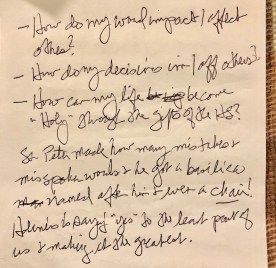 - How do my word impact/affect
others?
- How do my decisions im/aff others?
- How can my life become
"Holy" through the gifts of the HS?
St. Peter made how many mistakes &
words & he got a basilica
named after him & even a chair!
to say "yes" to the least part of
us & making it the greatest.